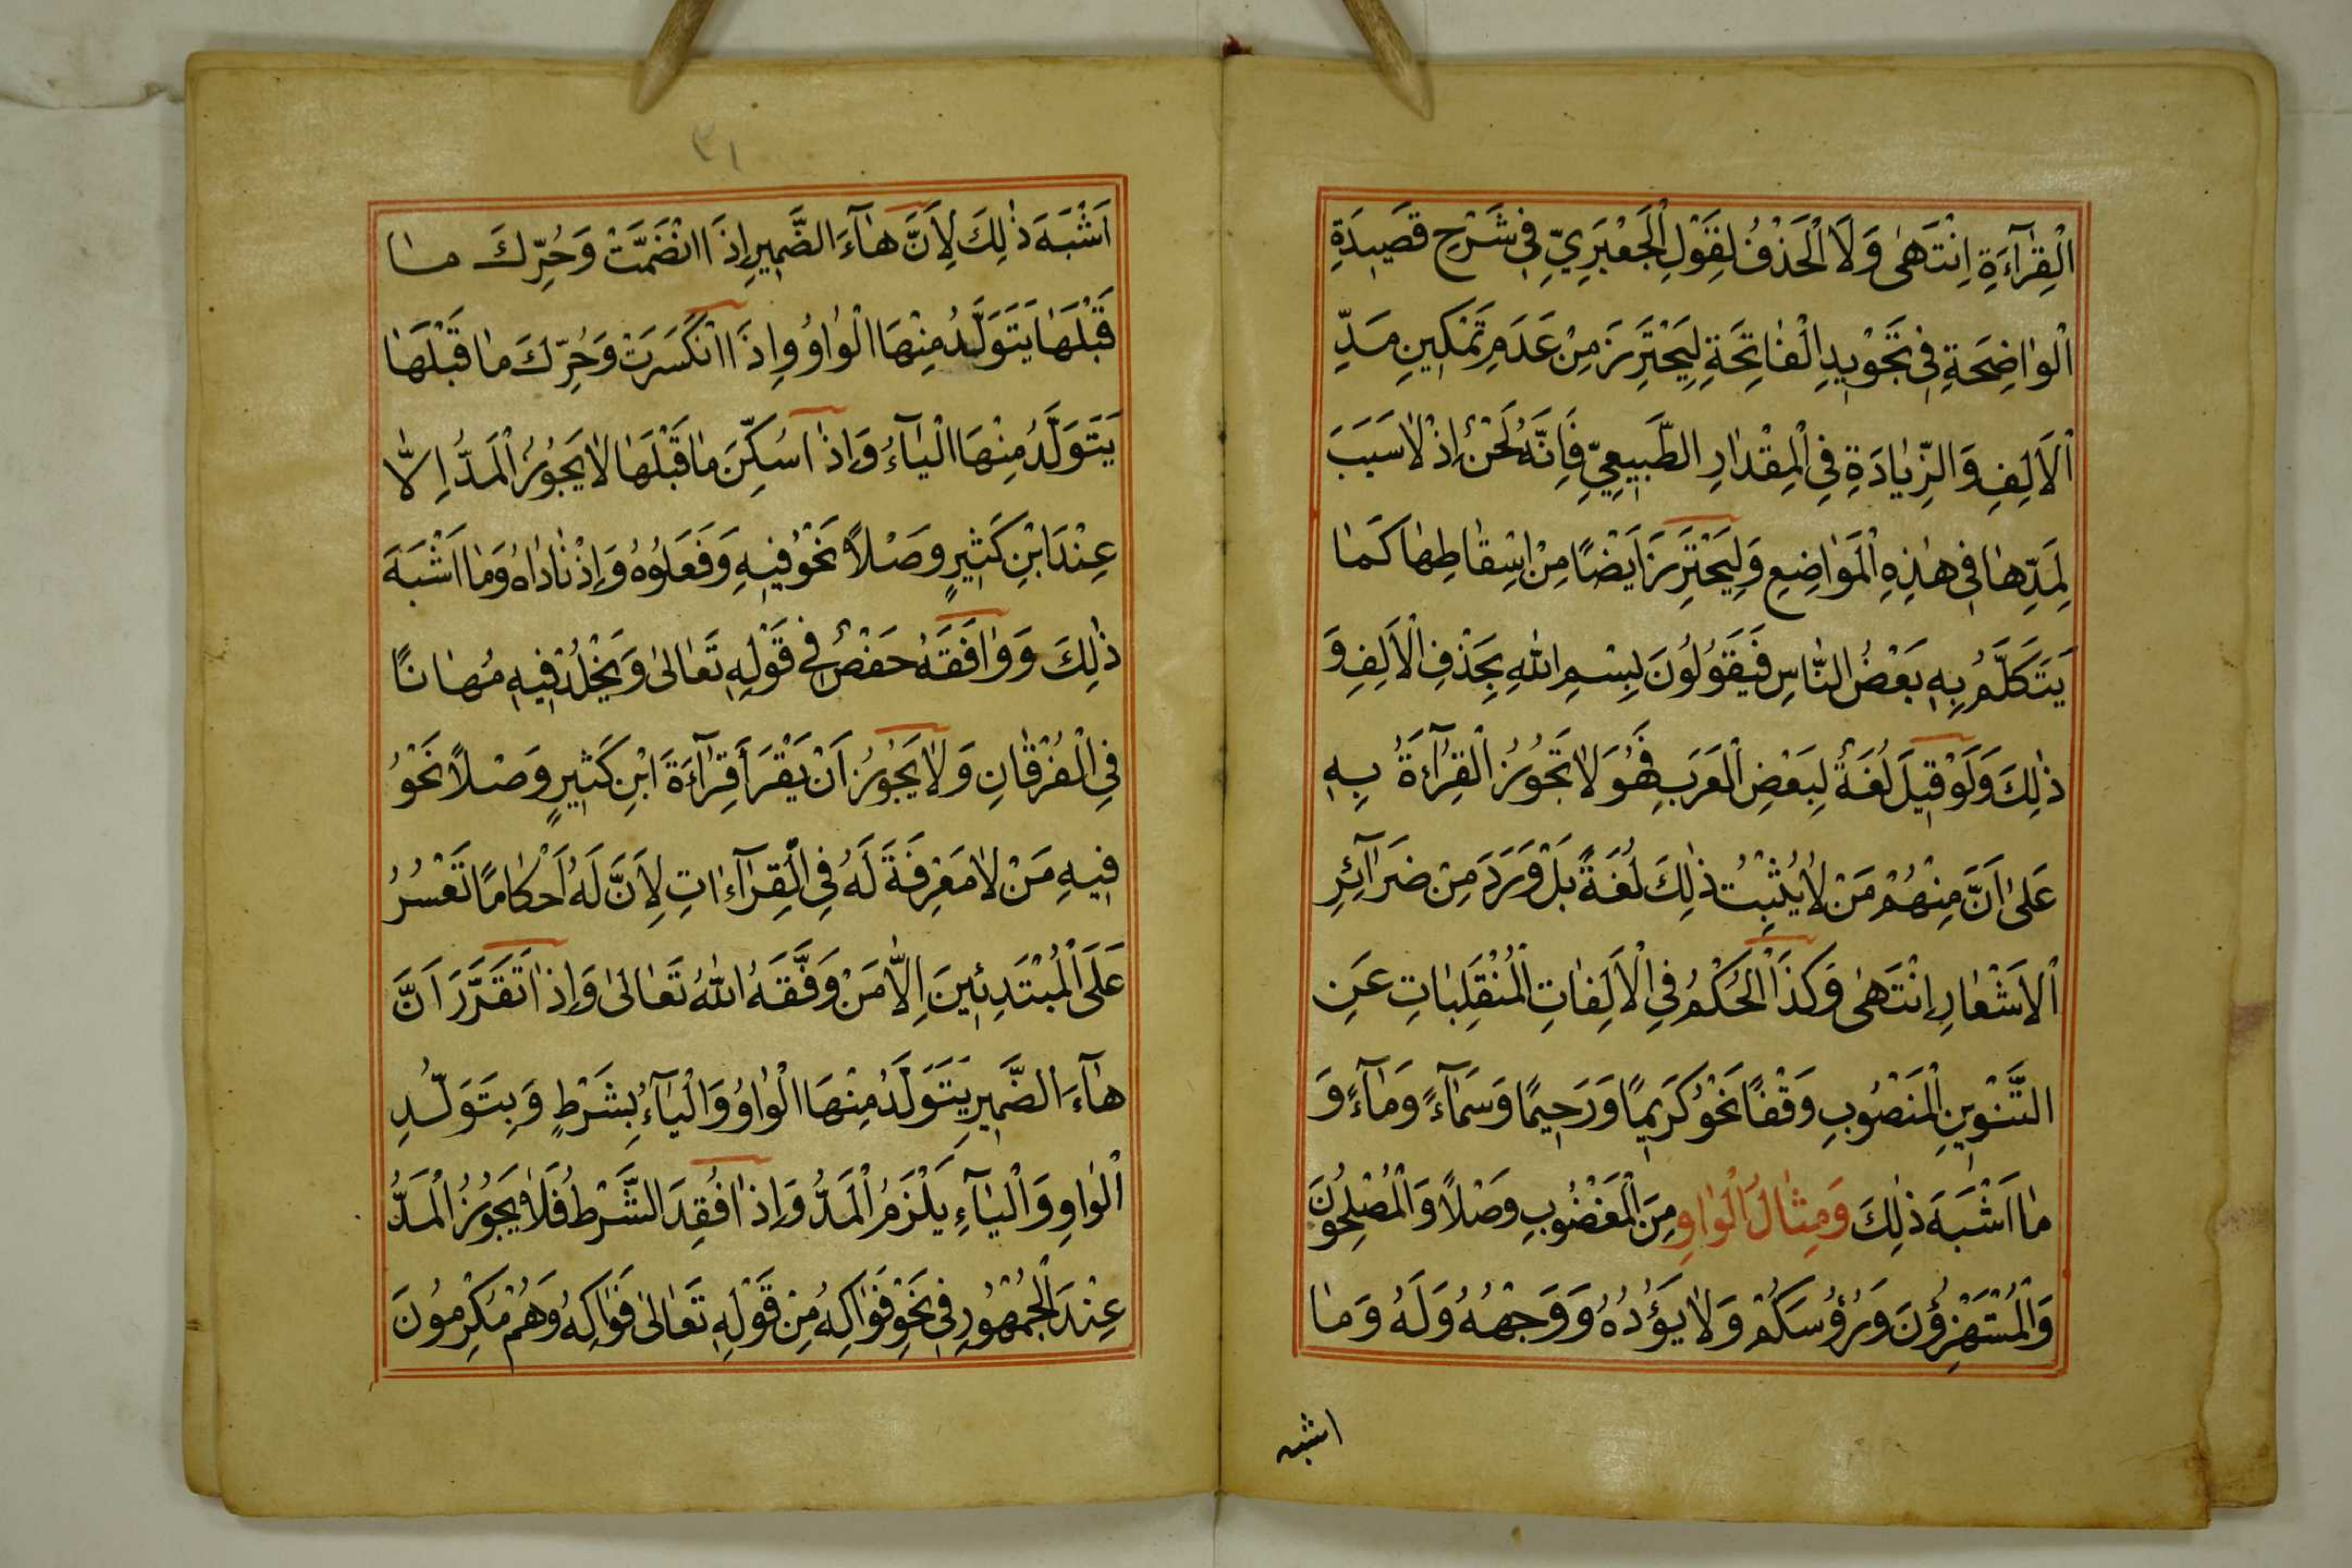 اَلْقِرٰآءَةِ اِنْتَهٰى وَلَا الْحَذْفُ لِقَوْلِ الْجَعْبَرِيِّ فِي شَرْحِ قَصِيدَةِ
اَلْوٰاضِحَةِ فِي تَجْوِيدِ الْفٰاتِحَةِ لِيَحْتَرِزَ مِنْ عَدَمِ تَمْكِينِ مَدِّ
اْلاَلِفِ وَالزِّيٰادَةِ فِي الْمِقْدٰارِ الطَّبِيعِيِّ فَاِنَّهُ لَحْنٌ اِذْ لاٰ سَبَبَ
لِمَدِّهٰا فِي هٰذِهِ الْمَوٰاضِعِ وَلِيَحْتَرِزَ اَيْضًا مِنْ اِسْقٰاطِهٰا كَمٰا
يَتَكَلَّمُ بِهِ بَعْضُ النّٰاسِ فَيَقُولُونَ بِسْمِ اللهِ بِحَذْفِ الْاَلِفِ وَ
ذٰلِكَ وَلَوْ قِيلَ لُغَةٌ لِبَعْضِ الْعَرَبِ فَهُوَ لاٰ تَجُوزُ الْقِرٰآءَةُ بِهِ
عَلٰى اَنَّ مِنْهُمْ مَنْ لاٰ يُثْبِتُ ذٰلِكَ لُغَةً بَلْ وَرَدَ مِنْ ضَرٰآئِرِ
اْلاَشْعٰارِ اِنْتَهٰى وَكَذَا الْحُكْمُ فِي الْاَلِفٰاتِ الْمُنْقَلِبٰاتِ عَنِ
التَّنْوِينِ الْمَنْصُوبِ وَقْفًا نَحْوُ كَرِيمًا وَرَحِيمًا وَسَمٰآءً وَمٰآءً وَ
مٰا اَشْبَهَ ذٰلِكَ وَمِثٰالُ الْوٰاوِ مِنَ الْمَغْضُوبِ وَصْلاً وَالْمُصْلِحُونَ
وَالْمُسْتَهْزِؤُنَ وَرُؤُسَكُمْ وَلاٰ يَؤُدُهُ وَوَجْهُهُ وَلَهُ وَمٰا
اشبه
٣١
اَشْبَهَ ذٰلِكَ لِاَنَّ هٰآءَ الضَّمِيرِ اِذَا انْضَمَّتْ وَحُرِّكَ مٰا
قَبْلَهٰا يَتَوَلَّدُ مِنْهَا الْوٰاوُ وِاِذَا انْكَسَرَتْ وَحُرِّكَ مٰا قَبْلَهٰا
يَتَوَلَّدُ مِنْهَا الْيٰآءُ وَاِذٰا سُكِّنَ مٰا قَبْلَهٰا لاٰ يَجُوزُ الْمَدُّ اِلاّٰ
عِنْدَ ابْنِ كَثِيرٍ وَصْلاً نَحْوُ فِيهِ وَفَعَلُوهُ وَاِذْ نٰادٰاهُ وَمٰا اَشْبَهَ
ذٰلِكَ وَوٰافَقَهُ حَفْصٌ فِي قَوْلِهِ تَعٰالٰى وَيَخْلُدْ فِيهِ مُهٰانًا
فِي الْفُرْقٰانِ وَلاٰ يَجُوزُ اَنْ يَقْرَأَ قِرٰآءَةَ ابْنِ كَثِيرٍ وَصْلاً نَحْوُ
فِيهِ مَنْ لاٰ مَعْرِفَةَ لَهُ فِي الْقِرٰآءٰاتِ لِاَنَّ لَهُ اَحْكٰامًا تَعْسُرُ
عَلَى الْمُبْتَدِئِينَ اِلاّٰ مَنْ وَفَّقَهُ اللهُ تَعٰالٰى وَاِذٰا تَقَرَّرَ اَنَّ
هٰآءَ الضَّمِيرِ يَتَوَلَّدُ مِنْهَا الْوٰاوُ وَالْيٰآءُ بِشَرْطٍ وَبِتَوَلُّدِ
الْوٰاوِ وَالْيٰآءِ يَلْزَمُ الْمَدُّ وَاِذٰا فُقِدَ الشَّرْطُ فَلاٰ يَجُوزُ الْمَدُّ
عِنْدَ الْجُمْهُورِ فِي نَحْوِ فَوٰاكِهُ مِنْ قَوْلِهِ تَعٰالٰى فَوٰاكِهُ وَهُمْ مُكْرَمُونَ